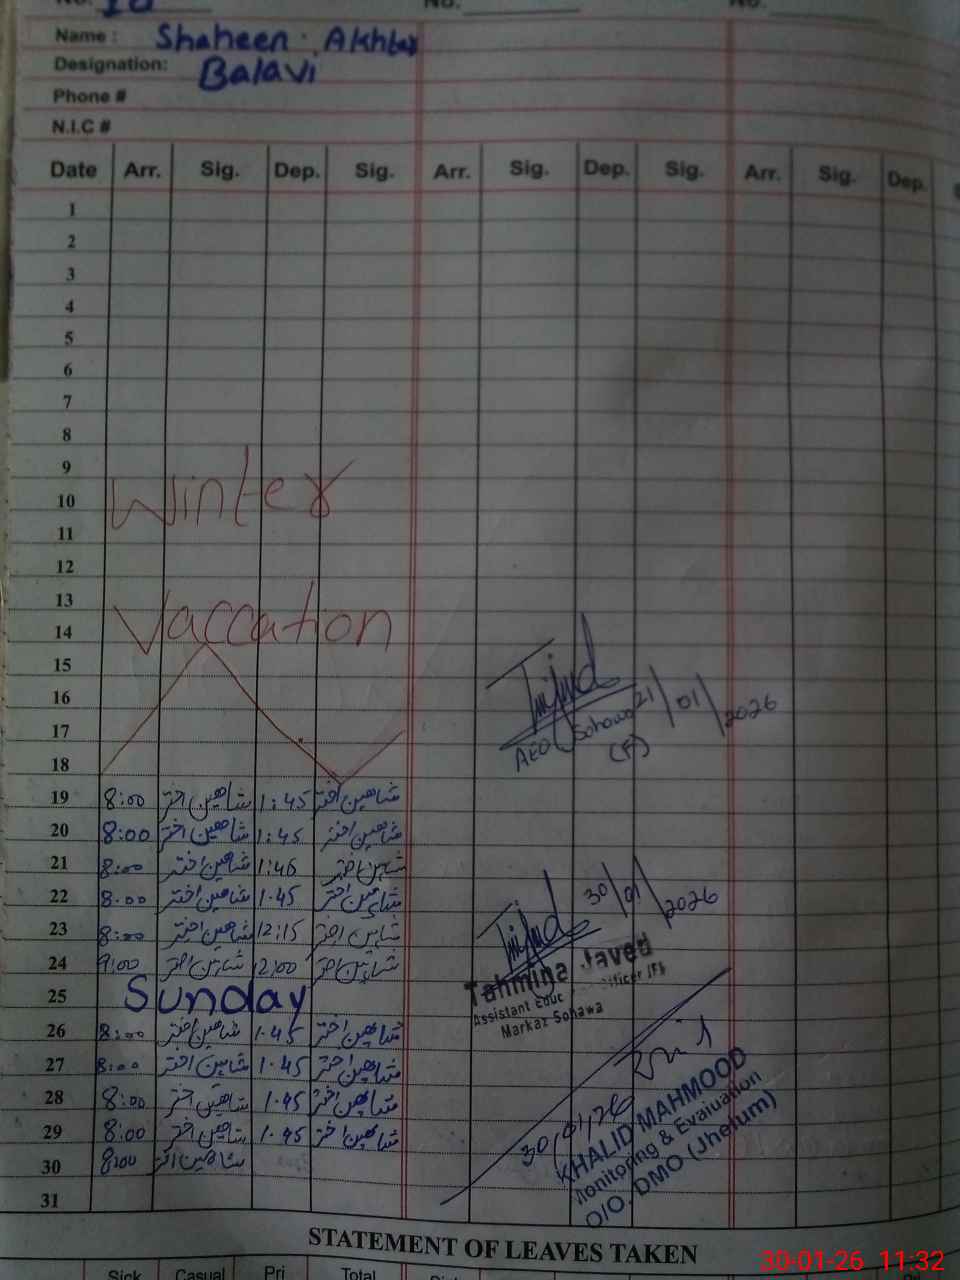 No. 10 No. No.
Name : Shaheen Akhtar
Designation: Balavi
Phone #
N.I.C #
Date Arr. Sig. Dep. Sig. Arr. Sig. Dep. Sig. Arr. Sig. Dep.
1
2
3
4
5
6
7
8
9
10 Winter
11
12
13
14 Vaccation
15
16
17
18
AEO Sohawa 21/01/2026
(F)
19 8:00 شاہین اختر 1:45 شاہین اختر
20 8:00 شاہین اختر 1:45 شاہین اختر
21 8:00 شاہین اختر 1:46 شاہین اختر
22 8:00 شاہین اختر 1.45 شاہین اختر
23 8:00 شاہین اختر 12:15 شاہین اختر
24 9:00 شاہین اختر 2:00 شاہین اختر
25 Sunday
26 8:00 شاہین اختر 1.45 شاہین اختر
27 8:00 شاہین اختر 1.45 شاہین اختر
28 8:00 شاہین اختر 1.45 شاہین اختر
29 8:00 شاہین اختر 1.45 شاہین اختر
30 8:00 شاہین اختر
31
30/01/2026
Tahmina Javed
Assistant Educ officer (F)
Markaz Sohawa
30/01/26
KHALID MAHMOOD
Monitoring & Evaluation
O/O. DMO (Jhelum)
STATEMENT OF LEAVES TAKEN
Sick Casual Pri Total
30-01-26 11:32